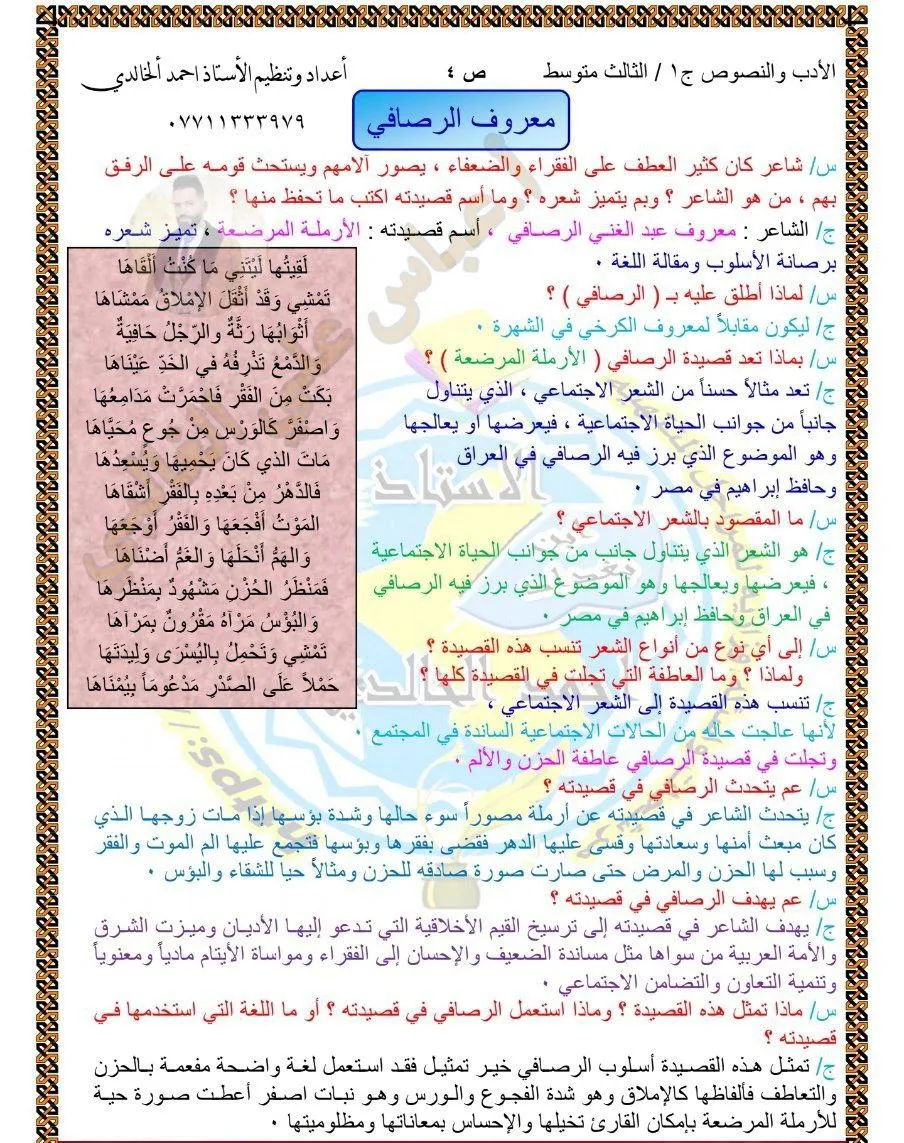 الأدب والنصوص ج١ / الثالث متوسط ص ٤ أعداد وتنظيم الأستاذ احمد ألخالدي
معروف الرصافي
٠٧٧١١٣٣٣٩٧٩
س/ شاعر كان كثير العطف على الفقراء والضعفاء ، يصور آلامهم ويستحث قومه على الرفق
بهم ، من هو الشاعر ؟ وبم يتميز شعره ؟ وما أسم قصيدته اكتب ما تحفظ منها ؟
ج/ الشاعر : معروف عبد الغني الرصافي ، أسم قصيدته : الأرملة المرضعة ، تميز شعره
برصانة الأسلوب ومقالة اللغة ٠
س/ لماذا أطلق عليه بـ ( الرصافي ) ؟
ج/ ليكون مقابلاً لمعروف الكرخي في الشهرة ٠
س/ بماذا تعد قصيدة الرصافي ( الأرملة المرضعة ) ؟
ج/ تعد مثالاً حسناً من الشعر الاجتماعي ، الذي يتناول
جانباً من جوانب الحياة الاجتماعية ، فيعرضها او يعالجها
وهو الموضوع الذي برز فيه الرصافي في العراق
وحافظ إبراهيم في مصر ٠
س/ ما المقصود بالشعر الاجتماعي ؟
ج/ هو الشعر الذي يتناول جانب من جوانب الحياة الاجتماعية
، فيعرضها ويعالجها وهو الموضوع الذي برز فيه الرصافي
في العراق وحافظ إبراهيم في مصر ٠
س/ إلى أي نوع من أنواع الشعر تنسب هذه القصيدة ؟
ولماذا ؟ وما العاطفة التي تجلت في القصيدة كلها ؟
ج/ تنسب هذه القصيدة إلى الشعر الاجتماعي ،
لأنها عالجت حاله من الحالات الاجتماعية السائدة في المجتمع ٠
وتجلت في قصيدة الرصافي عاطفة الحزن والألم ٠
لَقِيتُها لَيْتَنِي مَا كُنْتُ أَلْقَاهَا
تَمْشِي وَقَدْ أَثْقَلَ الإمْلاقُ مَمْشَاهَا
أَثْوَابُهَا رَثَّةٌ والرِّجْلُ حَافِيَةٌ
وَالدَّمْعُ تَذْرِفُهُ في الخَدِّ عَيْنَاهَا
بَكَتْ مِنَ الفَقْرِ فَاحْمَرَّتْ مَدَامِعُهَا
وَاصْفَرَّ كَالوَرْسِ مِنْ جُوعٍ مُحَيَّاهَا
مَاتَ الذي كَانَ يَحْمِيهَا وَيُسْعِدُهَا
فَالدَّهْرُ مِنْ بَعْدِهِ بِالفَقْرِ أَشْقَاهَا
المَوْتُ أَفْجَعَهَا وَالفَقْرُ أَوْجَعَهَا
وَالهَمُّ أَنْحَلَهَا وَالغَمُّ أَضْنَاهَا
فَمَنْظَرُ الحُزْنِ مَشْهُودٌ بِمَنْظَرِهَا
وَالبُؤْسُ مَرْآهُ مَقْرُونٌ بِمَرْآهَا
تَمْشِي وَتَحْمِلُ بِاليُسْرَى وَلِيدَتَهَا
حَمْلاً عَلَى الصَّدْرِ مَدْعُومَاً بِيُمْنَاهَا
س/ عم يتحدث الرصافي في قصيدته ؟
ج/ يتحدث الشاعر في قصيدته عن أرملة مصوراً سوء حالها وشدة بؤسها إذا مات زوجها الذي
كان مبعث أمنها وسعادتها وقسى عليها الدهر فقضى بفقرها وبؤسها فتجمع عليها الم الموت والفقر
وسبب لها الحزن والمرض حتى صارت صورة صادقه للحزن ومثالاً حيا للشقاء والبؤس ٠
س/ عم يهدف الرصافي في قصيدته ؟
ج/ يهدف الشاعر في قصيدته إلى ترسيخ القيم الأخلاقية التي تدعو إليها الأديان وميزت الشرق
والأمة العربية من سواها مثل مساندة الضعيف والإحسان إلى الفقراء ومواساة الأيتام مادياً ومعنوياً
وتنمية التعاون والتضامن الاجتماعي ٠
س/ ماذا تمثل هذه القصيدة ؟ وماذا استعمل الرصافي في قصيدته ؟ أو ما اللغة التي استخدمها في
قصيدته ؟
ج/ تمثل هذه القصيدة أسلوب الرصافي خير تمثيل فقد استعمل لغة واضحة مفعمة بالحزن
والتعاطف فألفاظها كالإملاق وهو شدة الفجوع والورس وهو نبات اصفر أعطت صورة حية
للأرملة المرضعة بإمكان القارئ تخيلها والإحساس بمعاناتها ومظلوميتها ٠